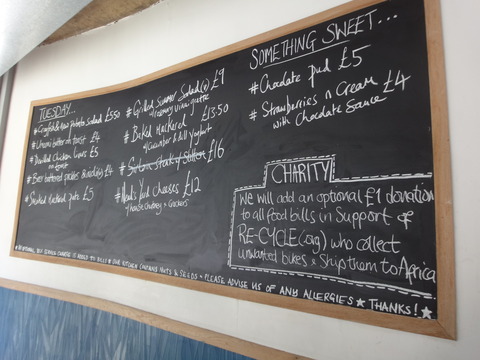 TUESDAY...
# Crayfish & new Potato Salad £5.50
on toast £4
# Devilled Chicken livers £5
on toast
# Beer battered pickles £4
# Smoked Mackerel pate £5
# Grilled Summer Salad (v) £9
# Baked Mackerel £13.50
w/ Cucumber & dill yoghurt
£16
# Neal's Yard cheeses £12
w/ house Chutney & Crackers
SOMETHING SWEET...
# Chocolate pud £5
# Strawberries n Cream £4
with Chocolate Sauce
CHARITY
We will add an optional £1 donation
to all food bills in Support of
RE-CYCLE(.org) who collect
unwanted bikes & Ship them to Africa
IS ADDED TO BILLS # OUR KITCHEN CONTAINS NUTS & SEEDS - PLEASE ADVISE US OF ANY ALLERGIES ★ THANKS! ★